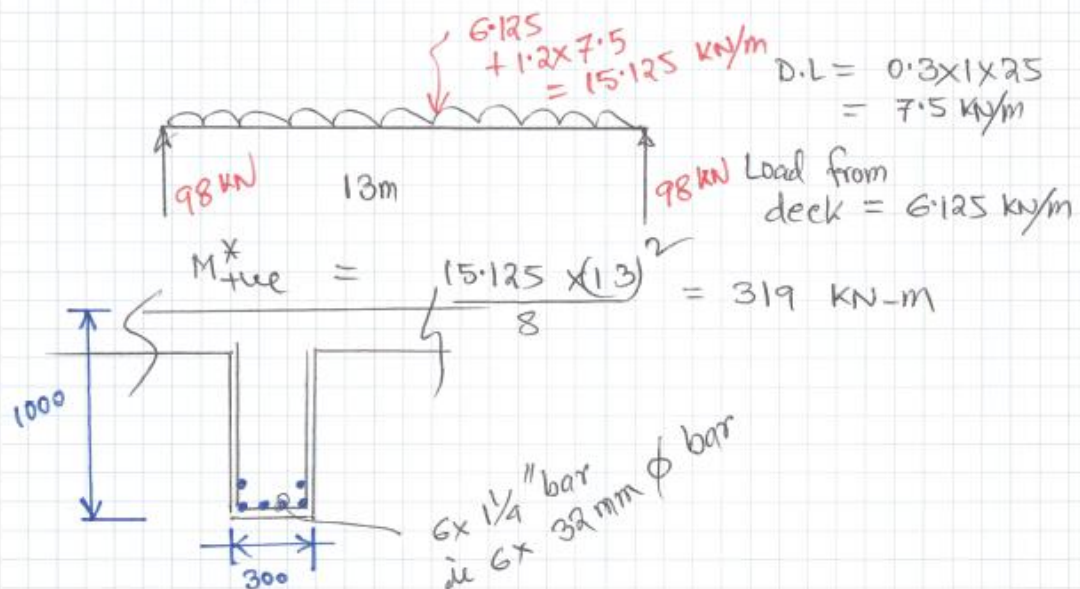 6.125
+ 1.2x7.5
= 15.125 KN/m
D.L = 0.3x1x25
= 7.5 KN/m
98 KN
13m
98 KN
Load from
deck = 6.125 KN/m
M*+ve = 15.125 x(13)²
8
= 319 KN-m
1000
300
6x 1¼" bar
ie 6x 32mm ϕ bar